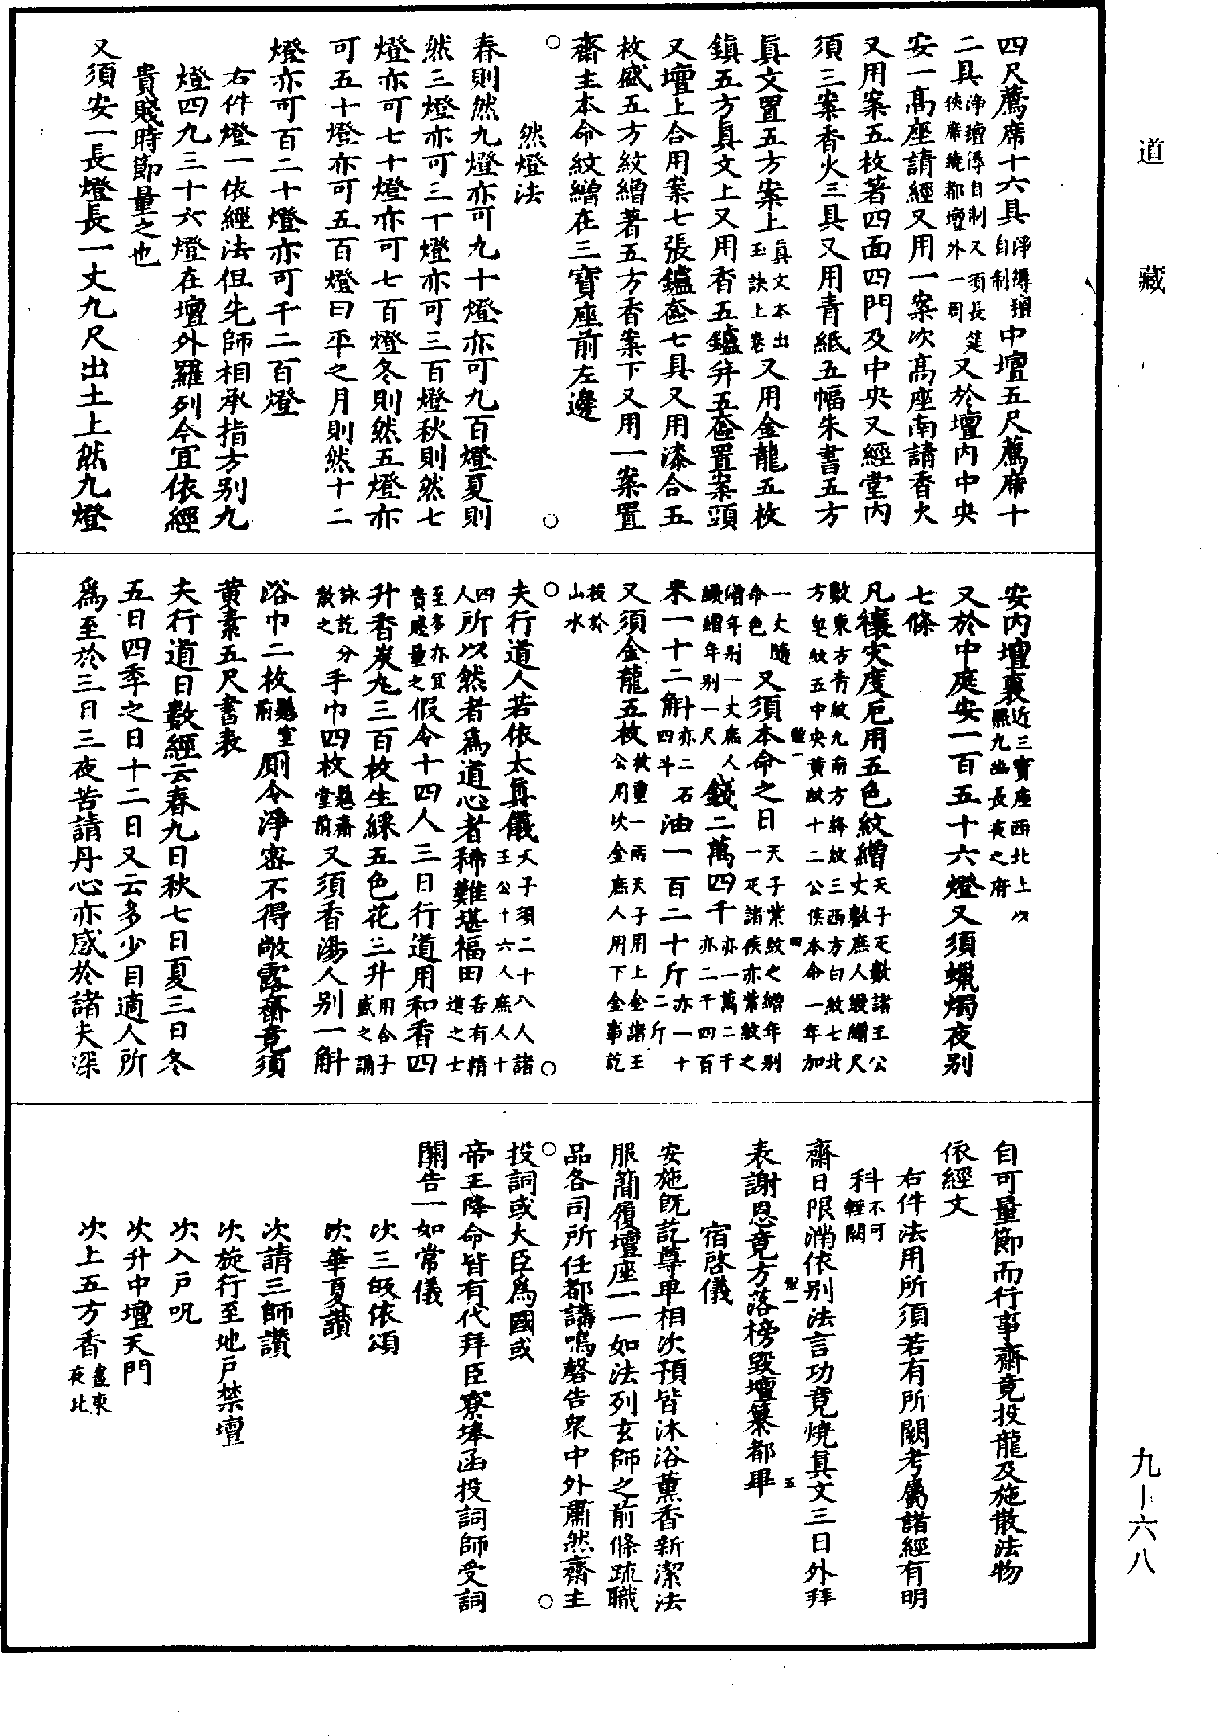 道藏
九—六八
四尺薦席十六具淨得預自制中壇五尺薦席十
二具淨壇得自制又須長筵俠席繞都壇外一周又於壇内中央
安一高座請經又用一案次高座南請香火
又用案五枚著四面四門及中央又經堂内
須三案香火三具又用青紙五幅朱書五方
真文置五方案上真文本出玉訣上卷又用金龍五枚
鎮五方真文上又用香五鑪并五奩置案頭
又壇上合用案七張鑪奩七具又用漆合五
枚盛五方紋繒著五方香案下又用一案置
齋主本命紋繒在三寶座前左邊
然燈法
春則然九燈亦可九十燈亦可九百燈夏則
然三燈亦可三十燈亦可三百燈秋則然七
燈亦可七十燈亦可七百燈冬則然五燈亦
可五十燈亦可五百燈曰平之月則然十二
燈亦可百二十燈亦可千二百燈
右件燈一依經法但先師相承指方別九
燈四九三十六燈在壇外羅列今宜依經
貴賤時節量之也
又須安一長燈長一丈九尺出土上然九燈
安内壇裏近三寶座西北上以照九幽長夜之府
又於中庭安一百五十六燈又須蠟燭夜別
七條
凡禳災度厄用五色紋繒天子疋數諸王公丈數庶人緩繒尺數東方青紋九南方絳紋三西方白紋七北方皂紋五中央黄紋十二公侯本命一年加
一丈隨命色又須本命之日天子紫紋之繒年別一疋諸侯亦紫紋之
繒年別一丈庶人緩繒年別一尺錢二萬四千亦一萬二千亦二千四百
米一十二斛亦二石四斗油一百二十斤亦一十二斤
又須金龍五枚枚重一兩天子用上金諸王公用次金庶人用下金事訖
投於山水
夫行道人若依太真儀天子須二十八人諸王公十六人庶人十
四人所以然者爲道心者稀難堪福田若有精進之士
至多亦宜貴賤量之假令十四人三日行道用和香四
升香炭九三百枚生綵五色花三升用合子盛之誦
詠訖分散之手巾四枚懸齋堂前又須香湯人別一斛
浴巾二枚懸室前厠令淨密不得敞露齋竟須
黄素五尺書表
夫行道日數經云春九日秋七日夏三日冬
五日四季之日十二日又云多少自適人所
爲至於三日三夜苦請丹心亦感於諸天深
自可量節而行事齋竟投龍及施散法物
依經文
右件法用所須若有所闕考屬諸經有明
科不可輕闕
齋日限滿依別法言功竟燒真文三日外拜
表謝恩竟方落榜毀壇纂都畢
宿啓儀
安施既訖尊卑相次預皆沐浴薰香新潔法
服簡履壇座一一如法列玄師之前條疏職
品各司所任都講鳴磬告衆中外肅然齋主
投詞或大臣爲國或
帝王降命皆有代拜臣寮捧函投詞師受詞
關告一如常儀
次三皈依頌
次華夏讚
次請三師讚
次旋行至地戸禁壇
次入戸呪
次升中壇天門
次上五方香晝東夜北